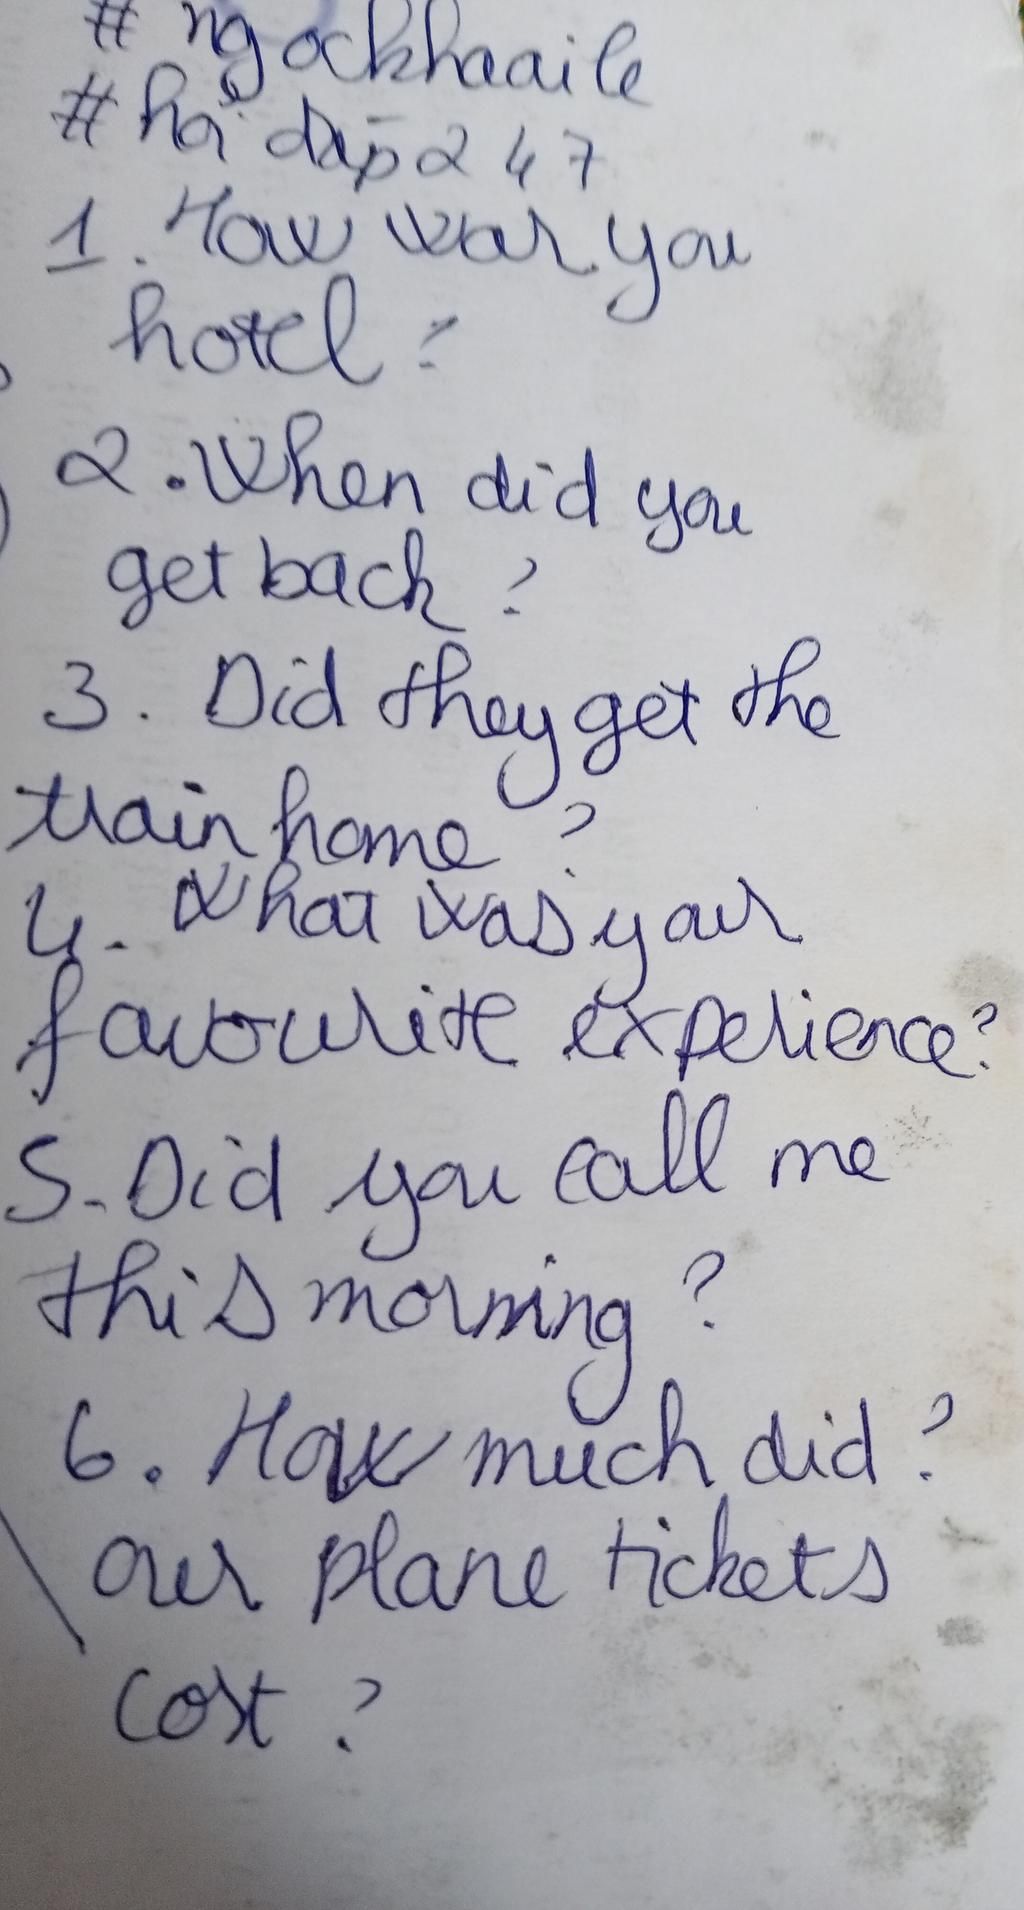 # ngockhaaile
# hỏi đáp 247
1. How was you
hotel ?
2. When did you
get back ?
3. Did they get the
train home ?
4. What was your
favourite experience?
5. Did you call me
this morning ?
6. How much did ?
our plane tickets
cost ?